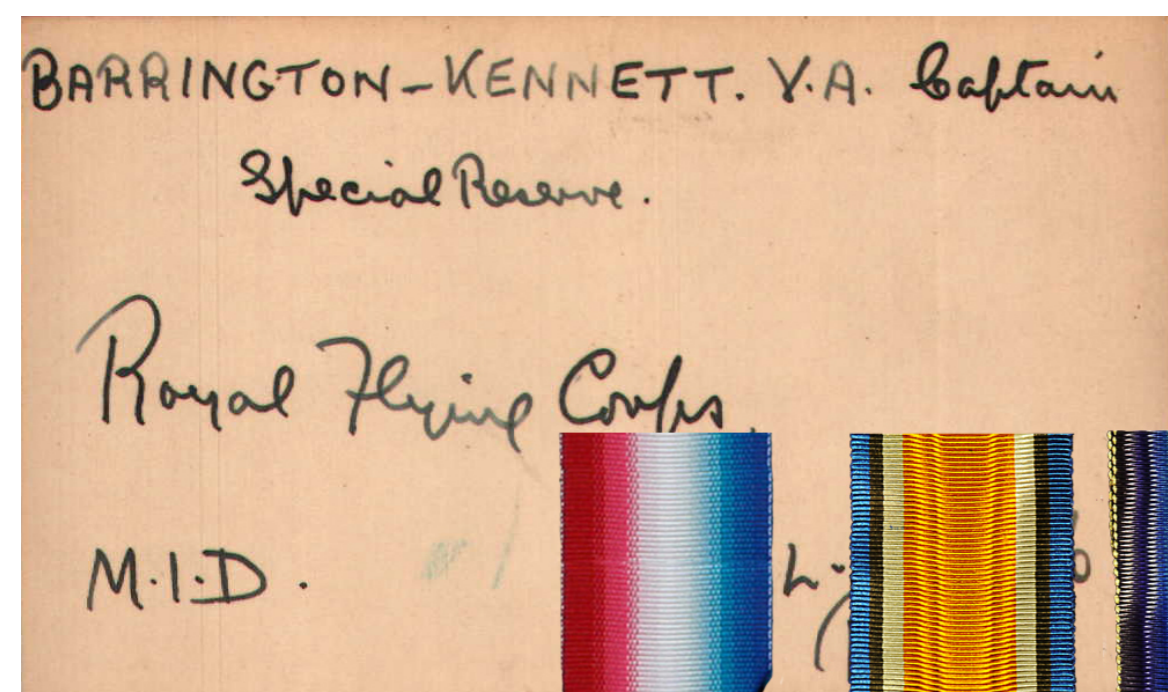 BARRINGTON-KENNETT. V.A. Captain
Special Reserve.
Royal Flying Corps.
M.I.D.